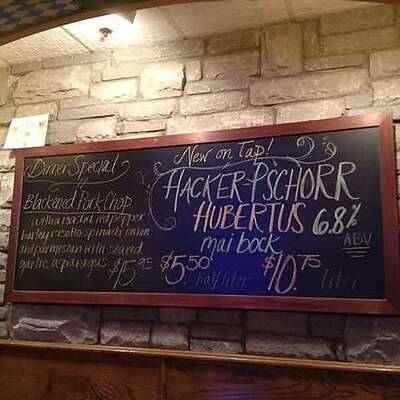 Dinner Special
Blackened Pork Chop
with a roasted red pepper
barley risotto, spinach, onion
and parmesan with seared
garlic asparagus $15.95
New on tap!
HACKER-PSCHORR
HUBERTUS 6.8%
ABV
mai bock
$5.50 half liter $10.75 liter